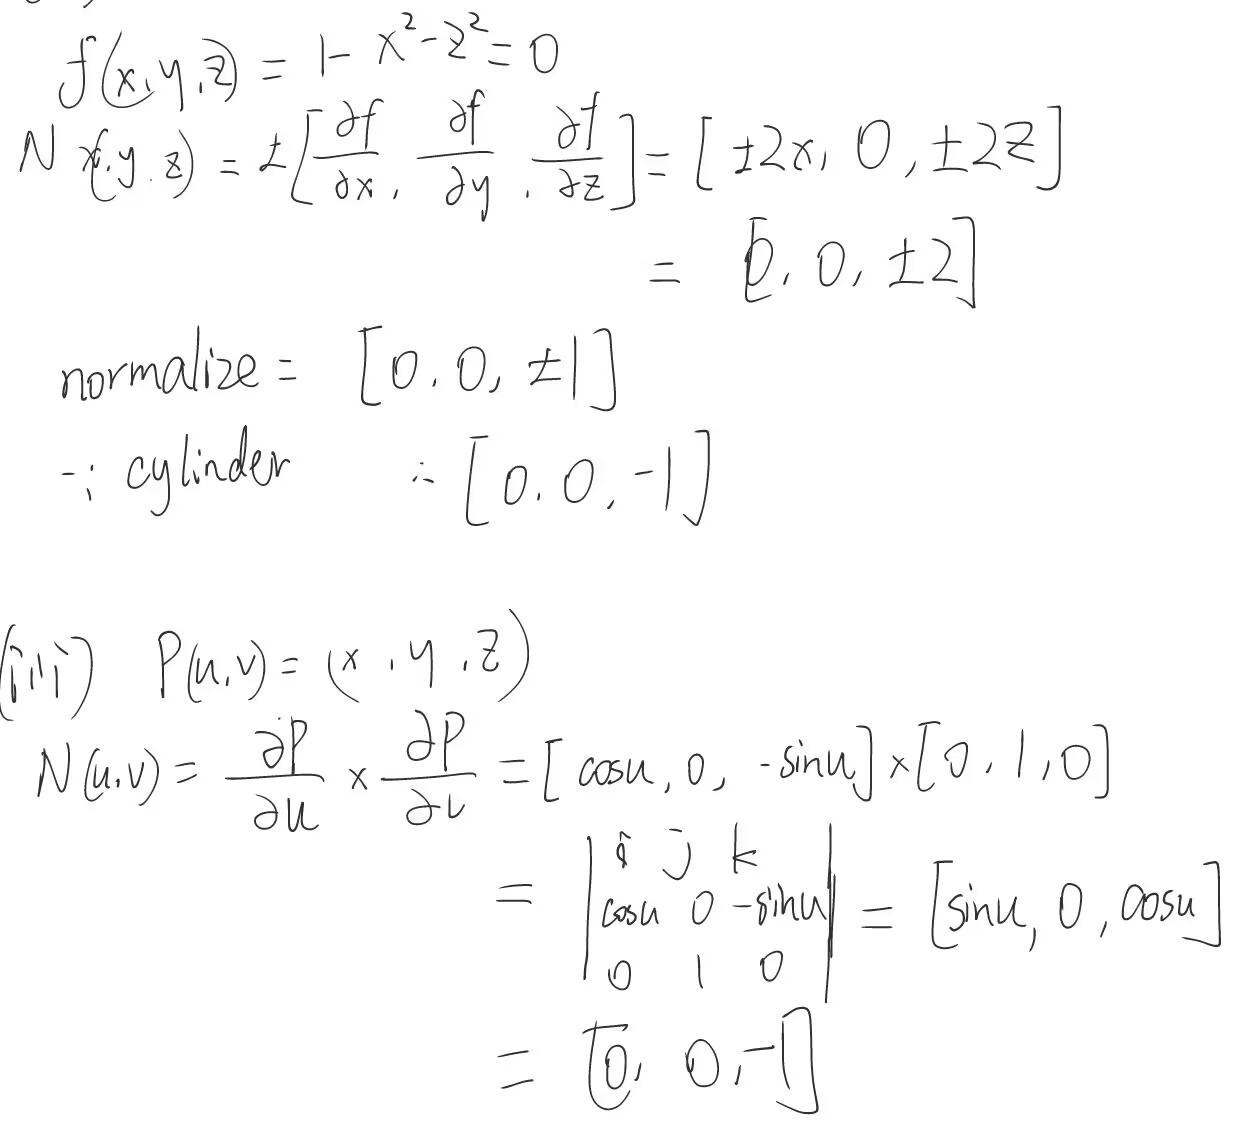 f(x, y, z) = 1 - x² - z² = 0
N (x, y, z) = ±[∂f/∂x, ∂f/∂y, ∂f/∂z] = [±2x, 0, ±2z]
= [0, 0, ±2]
normalize = [0, 0, ±1]
∵ cylinder ∴ [0, 0, -1]
(iii) P(u,v) = (x, y, z)
N(u,v) = ∂P/∂u × ∂P/∂v = [cosu, 0, -sinu] × [0, 1, 0]
= | i j k
cosu 0 -sinu
0 1 0 | = [sinu, 0, cosu]
= [0, 0, -1]